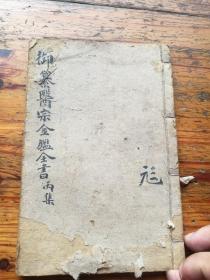 御纂醫宗金鑑全書丙集